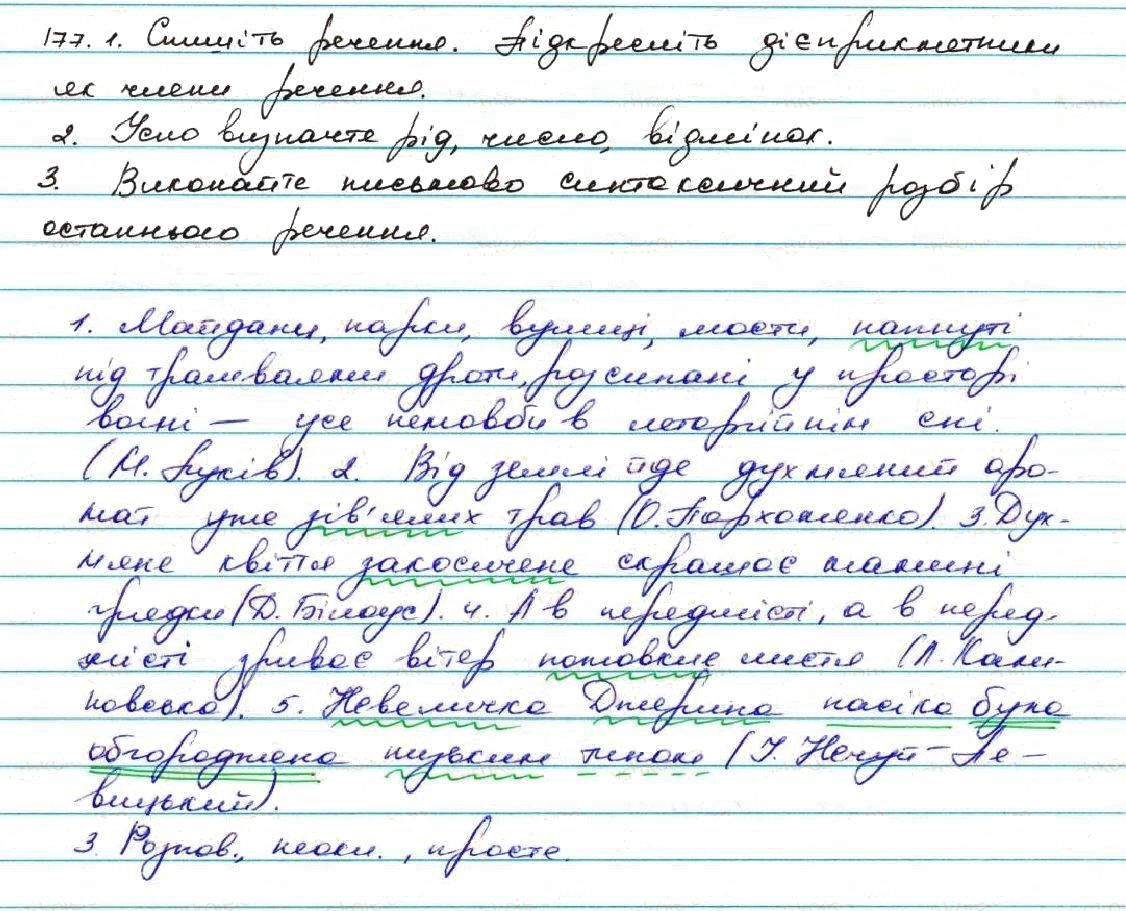 177. 1. Спишіть речення. Підкресліть дієприкметники
як члени речення.
2. Усно визначте рід, число, відмінок.
3. Виконайте письмово синтаксичний розбір
останнього речення.
1. Майдани, парки, вулиці, мости, напнуті
під трамваями дроти, розсипані у просторі
вогні — усе немовби в летаргійнім сні.
(М. Луків). 2. Від землі йде духмяний аро-
мат уже зів'ялих трав (О. Пархоменко). 3. Дух-
мяне квіття закосичене скрашає мамині
грядки (Д. Білоус). 4. А в передмісті, а в перед-
місті зриває вітер пожовкле листя (Л. Кали-
новська). 5. Невеличка Джерина пасіка була
обгороджена низьким тином (І. Нечуй-Ле-
вицький).
3. Розпов., неокл., просте.